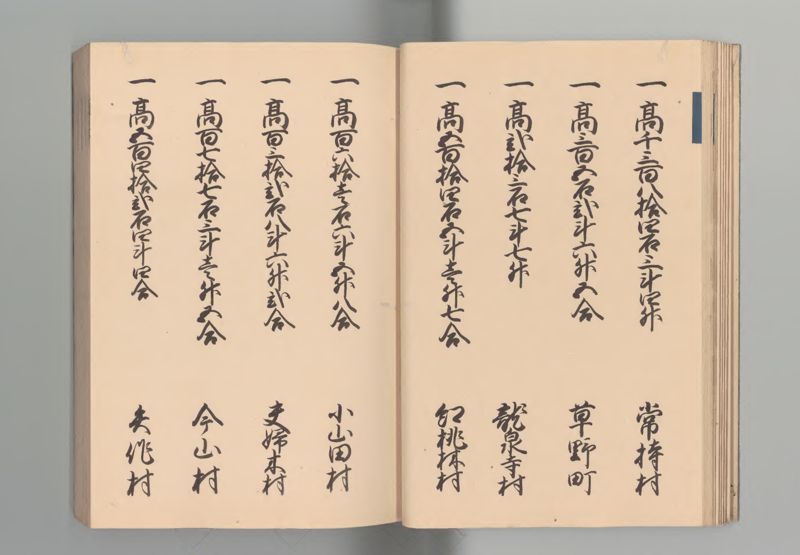 一 高千三百八拾四石三斗四升 常持村
一 高三百五石弐斗六升五合 草野町
一 高弐拾三石七斗七升 龍泉寺村
一 高五百拾四石五斗壱升七合 桃林村
一 高百六拾壱石六斗五升八合 小山田村
一 高百三拾弐石八斗六升弐合 夫婦木村
一 高百七拾七石三斗壱升五合 今山村
一 高五百四拾弐石四斗四合 矢作村